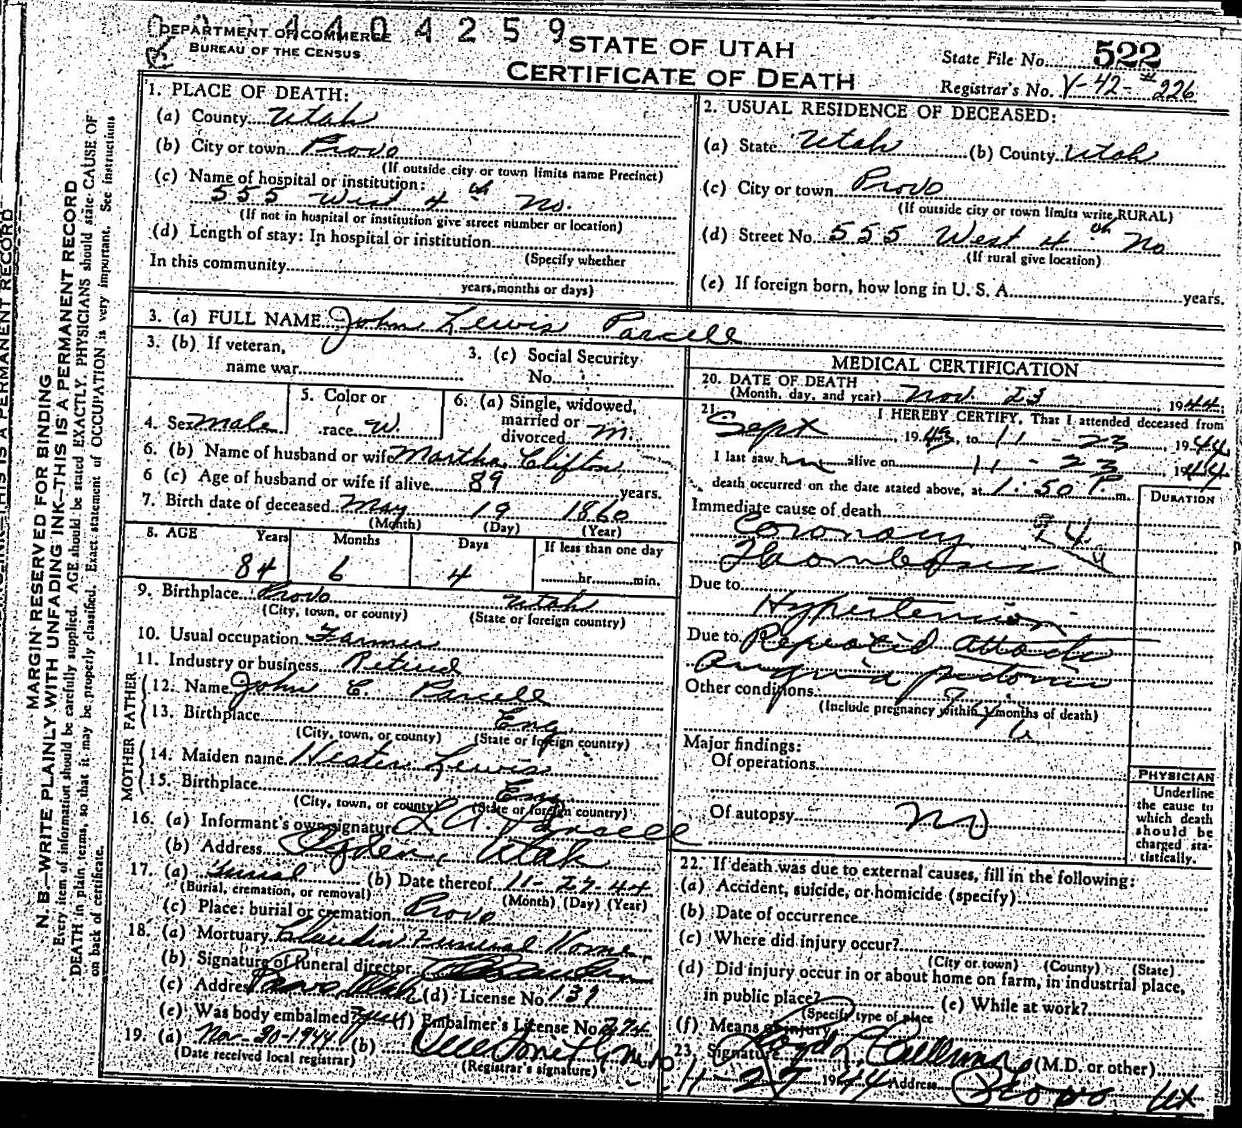 4404259
DEPARTMENT OF COMMERCE
BUREAU OF THE CENSUS
STATE OF UTAH
CERTIFICATE OF DEATH
State File No. 522
Registrar's No. V-42-#226
1. PLACE OF DEATH:
(a) County Utah
(b) City or town Provo
(If outside city or town limits name Precinct)
(c) Name of hospital or institution:
555 West 4th No.
(If not in hospital or institution give street number or location)
(d) Length of stay: In hospital or institution
(Specify whether
In this community
years, months or days)
2. USUAL RESIDENCE OF DECEASED:
(a) State Utah (b) County Utah
(c) City or town Provo
(If outside city or town limits write RURAL)
(d) Street No. 555 West 4th No
(If rural give location)
(e) If foreign born, how long in U. S. A. years.
3. (a) FULL NAME John Lewis Parcell
3. (b) If veteran,
name war
3. (c) Social Security
No.
4. Sex Male
5. Color or
race W.
6. (a) Single, widowed,
married or
divorced M.
6. (b) Name of husband or wife Martha Clifton
6 (c) Age of husband or wife if alive 89 years.
7. Birth date of deceased May 19 1860
(Month) (Day) (Year)
8. AGE Years Months Days If less than one day
84 6 4 hr. min.
9. Birthplace Provo Utah
(City, town, or county) (State or foreign country)
10. Usual occupation Farmer
11. Industry or business Retired
FATHER
12. Name John C. Parcell
13. Birthplace Eng
(City, town, or county) (State or foreign country)
MOTHER
14. Maiden name Hester Lewis
15. Birthplace Eng
(City, town, or county) (State or foreign country)
16. (a) Informant's own signature L.A. Parcell
(b) Address Ogden, Utah
17. (a) Burial (b) Date thereof 11-27-44
(Burial, cremation, or removal) (Month) (Day) (Year)
(c) Place: burial or cremation Provo
18. (a) Mortuary Claudin Funeral Home
(b) Signature of funeral director
(c) Address Provo, Utah (d) License No. 139
(e) Was body embalmed? yes (f) Embalmer's License No.
19. (a) Nov-30-1944 (b)
(Date received local registrar) (Registrar's signature)
MEDICAL CERTIFICATION
20. DATE OF DEATH
(Month, day, and year) Nov. 23 1944
21. I HEREBY CERTIFY, That I attended deceased from
Sept 1943, to 11-23 1944
I last saw him alive on 11-23 1944
death occurred on the date stated above, at 1:50 P. m.
DURATION
Immediate cause of death
Coronary
Thrombosis
Due to
Hypertension
Due to Repeated attacks
Angina pectoris
Other conditions
(Include pregnancy within 3 months of death)
Major findings:
Of operations
Of autopsy no
PHYSICIAN
Underline
the cause to
which death
should be
charged sta-
tistically.
22. If death was due to external causes, fill in the following:
(a) Accident, suicide, or homicide (specify)
(b) Date of occurrence
(c) Where did injury occur?
(City or town) (County) (State)
(d) Did injury occur in or about home on farm, in industrial place,
in public place? (e) While at work?
(Specify type of place
(f) Means of injury
23. Signature Lloyd L. Cullimore (M.D. or other)
11-27 1944 Address Provo Ut
MARGIN RESERVED FOR BINDING
N. B.—WRITE PLAINLY WITH UNFADING INK—THIS IS A PERMANENT RECORD
Every item of information should be carefully supplied. AGE should be stated EXACTLY. PHYSICIANS should state CAUSE OF
DEATH in plain terms, so that it may be properly classified. Exact statement of OCCUPATION is very important. See instructions
on back of certificate.
THIS IS A PERMANENT RECORD